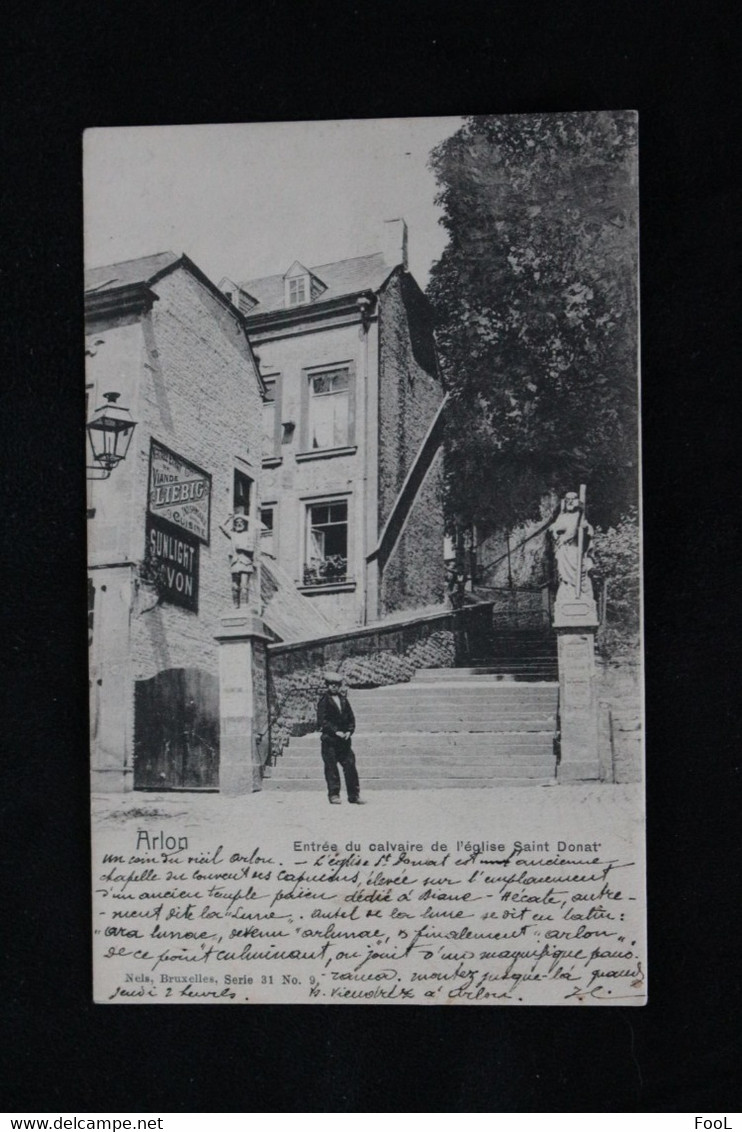 VIANDE
LIEBIG
CUISINE
SUNLIGHT
VON
Arlon
Entrée du calvaire de l'église Saint Donat
un coin du vieil Arlon. - L'église St Donat est une ancienne
chapelle du couvent des Capucins, élevée sur l'emplacement
d'un ancien temple païen dédié à Diane - Hécate, autre-
-ment dite la "Lune". autel de la lune se dit en latin:
"ara lunae, devenu "arlunae, & finalement "arlon"
De ce point culminant, on jouit d'un magnifique pano-
Nels, Bruxelles, Serie 31 No. 9
-rama. montez jusque-là quand
Jeudi 2 heures.
vous viendrez à Arlon.